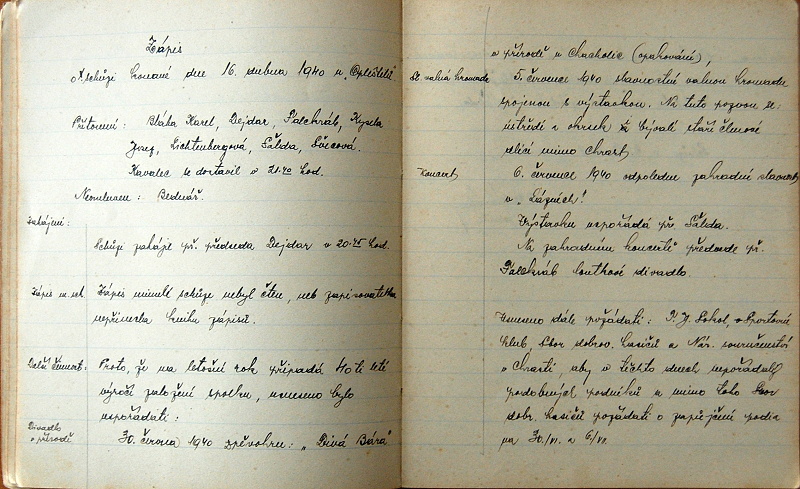 Zápis
o schůzi konané dne 16. dubna 1940 u „Opleštilů"
Přítomni: Bláha Karel, Dejdar, Palchráb, Kysela
Josef, Lichtenbergová, Sálda, Švecová.
Kavalec se dostavil v 21.40 hod.
Neomluven: Bednář.
Zahájení:
Schůzi zahájil př. předseda Dejdar v 20.45 hod.
Zápis m. sch.
Zápis minulé schůze nebyl čten, neb zapisovatelka
nepřinesla knihu zápisů.
Další činnost:
Proto, že na letošní rok připadá 40ti leté
výročí založení spolku, usneseno bylo
uspořádati:
Divadlo
v přírodě
30. června 1940 zpěvohru: „Divá Bára"
v přírodě v Chacholic (opakování),
Sl. valná hromada
5. července 1940 slavnostní valnou hromadu
spojenou s výstavkou. Na tuto pozvou se
ústředí a okrsek a bývalí staří členové
dlící mimo Chrast
Koncert
6. července 1940 odpoledne zahradní slavnost
v „Lázních!
Výstavku uspořádá př. Sálda.
Na zahradním koncertě předvede př.
Palchráb loutkové divadlo.
Usneseno dále požádati: T. J. Sokol, Sportovní
klub, Sbor dobrov. hasičů a Nár. souručenství
v Chrasti, aby v těchto dnech nepořádaly
podobných podniků a mimo toho Sbor
dobr. hasičů požádati o zapůjčení podia
na 30./VI. a 6/VII.